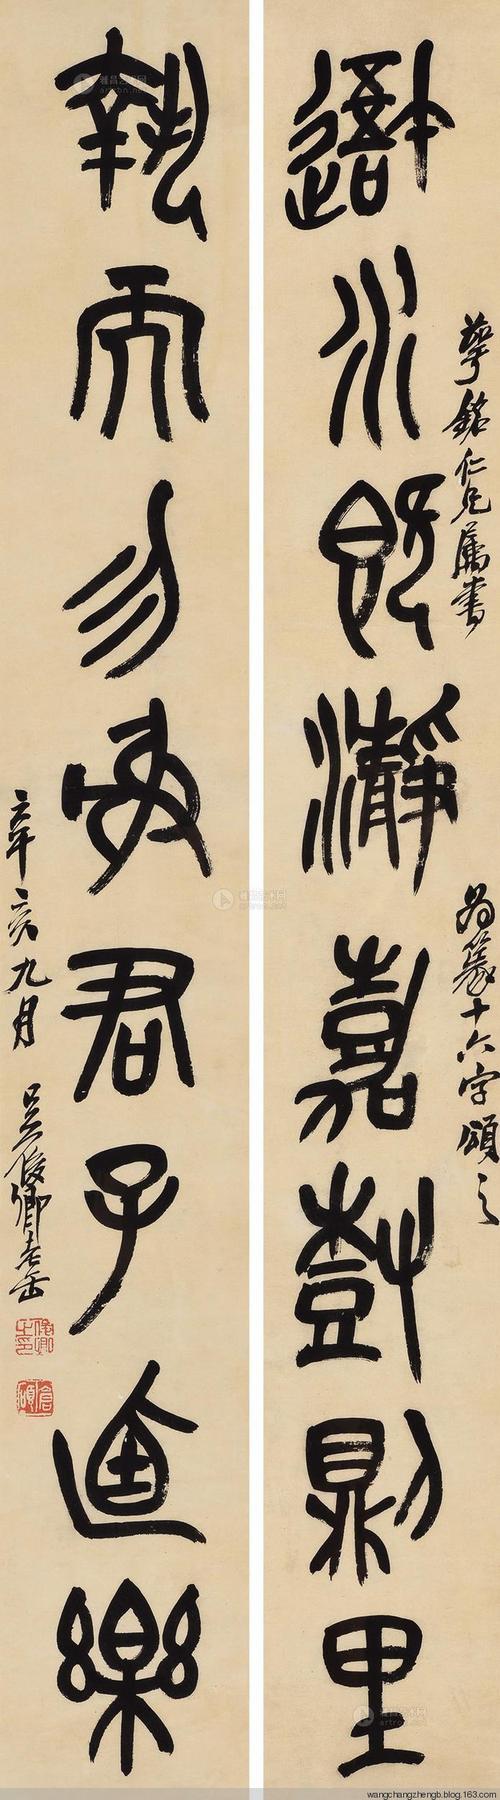 水既瀞嘉尌則里
銘仁兄屬書
為篆十六字頌之
執而勿射君子逌樂
辛亥九月 吳俊卿老缶
俊卿之印
倉碩
wangchangzhengb.blog.163.com